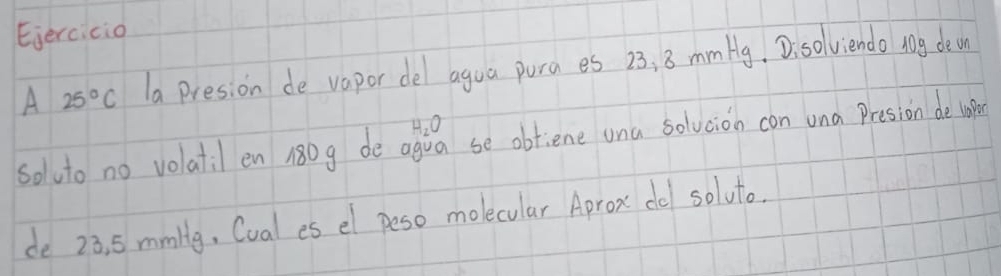 Ejercicio
A 25°C la Presión de vapor del agua pura es 23,8 mmHg. Disolviendo 10g de un
H₂O
soluto no volatil en 180g de agua se obtiene una solución con una Presión de vapor
de 23,5 mmHg. Cual es el Peso molecular Aprox del soluto.